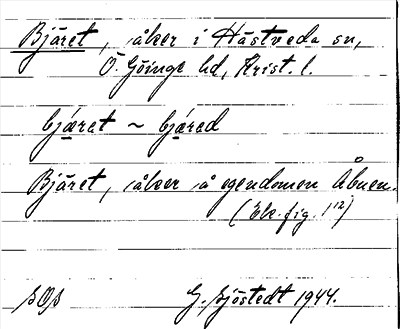 Bjäret, åker i Hästveda sn,
Ö. Göinge hd, Krist. l.
bjæ̱rat ~ bjæ̱rad
Bjäret, åker å egendomen Åbuen.
(Ek. fig. 1¹²)
SOS
G. Sjöstedt 1944.